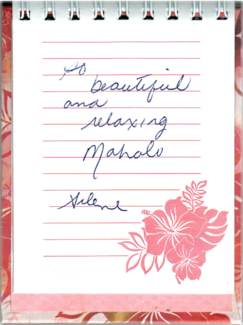 So
beautiful
and
relaxing
Mahalo
Arlene